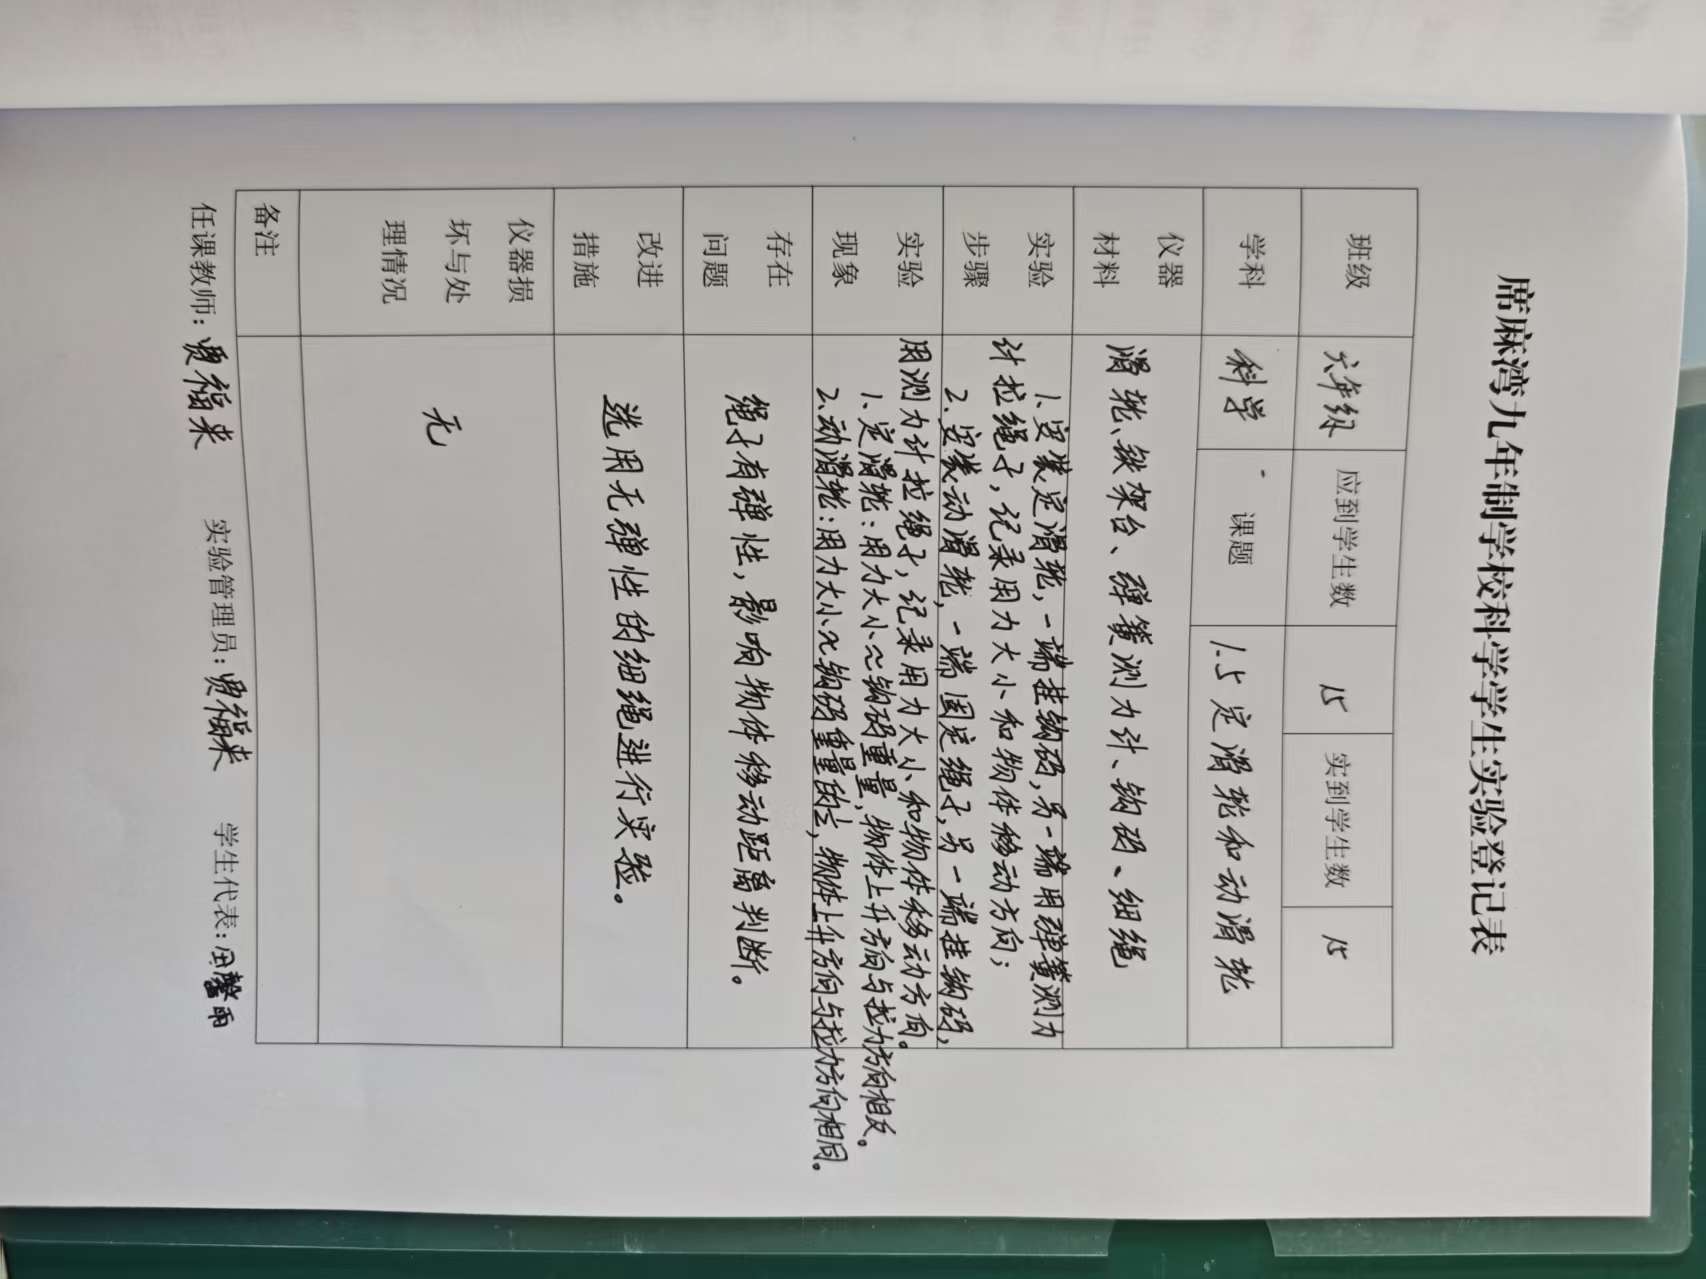 席麻湾九年制学校科学学生实验登记表
班级 六年级 应到学生数 15 实到学生数 15
学科 科学 课题 1.5定滑轮和动滑轮
仪器材料 滑轮、铁架台、弹簧测力计、钩码、细绳
实验步骤 1.安装定滑轮,一端挂钩码,另一端用弹簧测力
计拉绳子,记录用力大小和物体移动方向;
2.安装动滑轮,一端固定绳子,另一端挂钩码,
用测力计拉绳子,记录用力大小和物体移动方向。
实验现象 1.定滑轮:用力大小≈钩码重量,物体上升方向与拉力方向相反。
2.动滑轮:用力大小≈钩码重量的½,物体上升方向与拉力方向相同。
存在问题 绳子有弹性,影响物体移动距离判断。
改进措施 选用无弹性的细绳进行实验。
仪器损坏与处理情况 无
备注
任课教师:贾福来 实验管理员:贾福来 学生代表:田馨雨